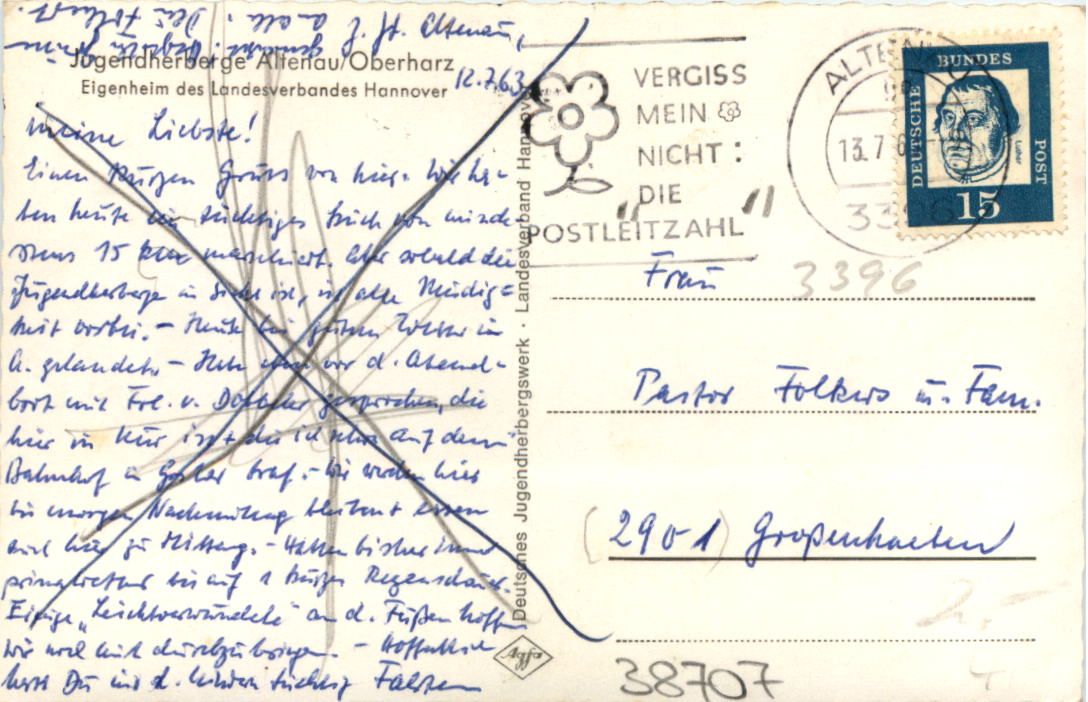 z. Zt. Altenau,
Jugendherberge Altenau/Oberharz
12.7.63
Eigenheim des Landesverbandes Hannover
Meine Liebste!
Einen kurzen Gruss von hier. Wir ha-
ben heute ein tüchtiges Stück von minde-
stens 15 km marschiert. Aber sobald die
Jugendherberge in Sicht ist, ist alle Müdig-
keit vorbei. – Heute bei gutem Wetter in
A. gelandet. – Habe eben vor d. Abend-
brot mit Frl. v. gesprochen, die
hier in Kur ist + die ich schon auf dem
Bahnhof in Goslar traf. – Wir werden hier
bis morgen Nachmittag bleiben + essen
auch hier zu Mittag. – Hatten bisher immer
prima Wetter bis auf 1 kurzen Regenschauer.
Einige „Leichtverwundete" an d. Füßen hoffen
wir noch mit durchzubringen. – Hoffentlich
hast Du mit d. Kindern tüchtig
Dein Folkert.
Deutsches Jugendherbergswerk · Landesverband Hannover
Agfa
VERGISS
MEIN
NICHT:
DIE
"POSTLEITZAHL"
ALTENAU
13.7.6
33
DEUTSCHE BUNDES POST
Luther
15
3396
Frau
Pastor Folkers u. Fam.
(2901) Großenkneten
38707